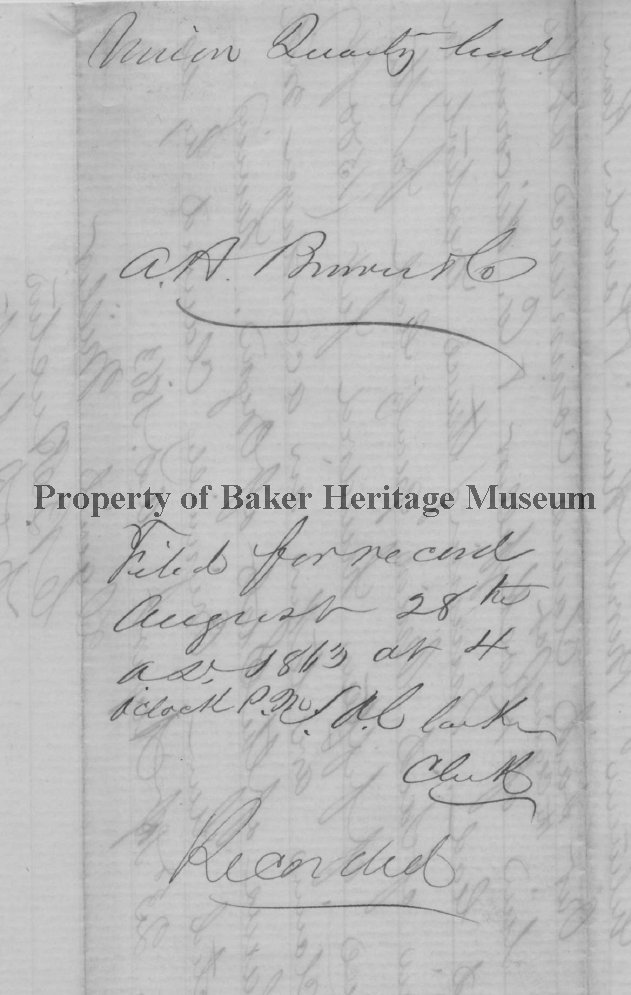 Union Quartz lead
A. H. Brown & Co
Property of Baker Heritage Museum
Filed for record
August 28th
A.D. 1863 at 4
o'clock P.M.
Clerk
Recorded